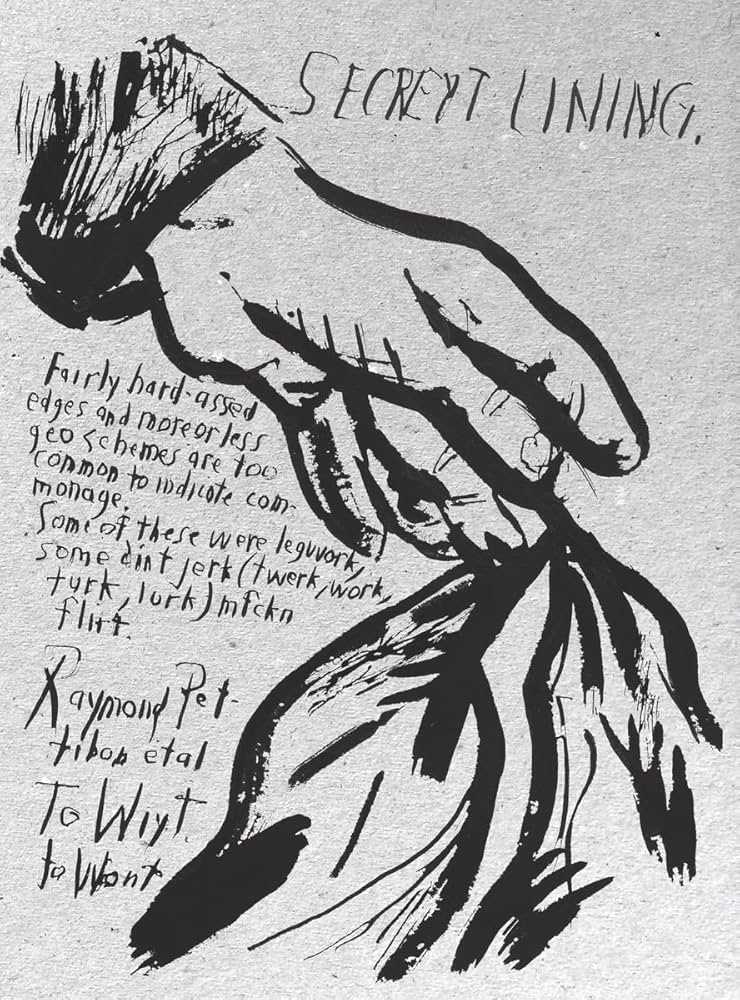 SECREYT LINING.
Fairly hard-assed
edges and more or less
geo schemes are too
common to indicate com-
monage.
Some of these were legwork,
some dint jerk (twerk, work,
turk, lurk) mfckn
flirt.
Raymond Pet-
tibon etal
To Wryt.
to Wont